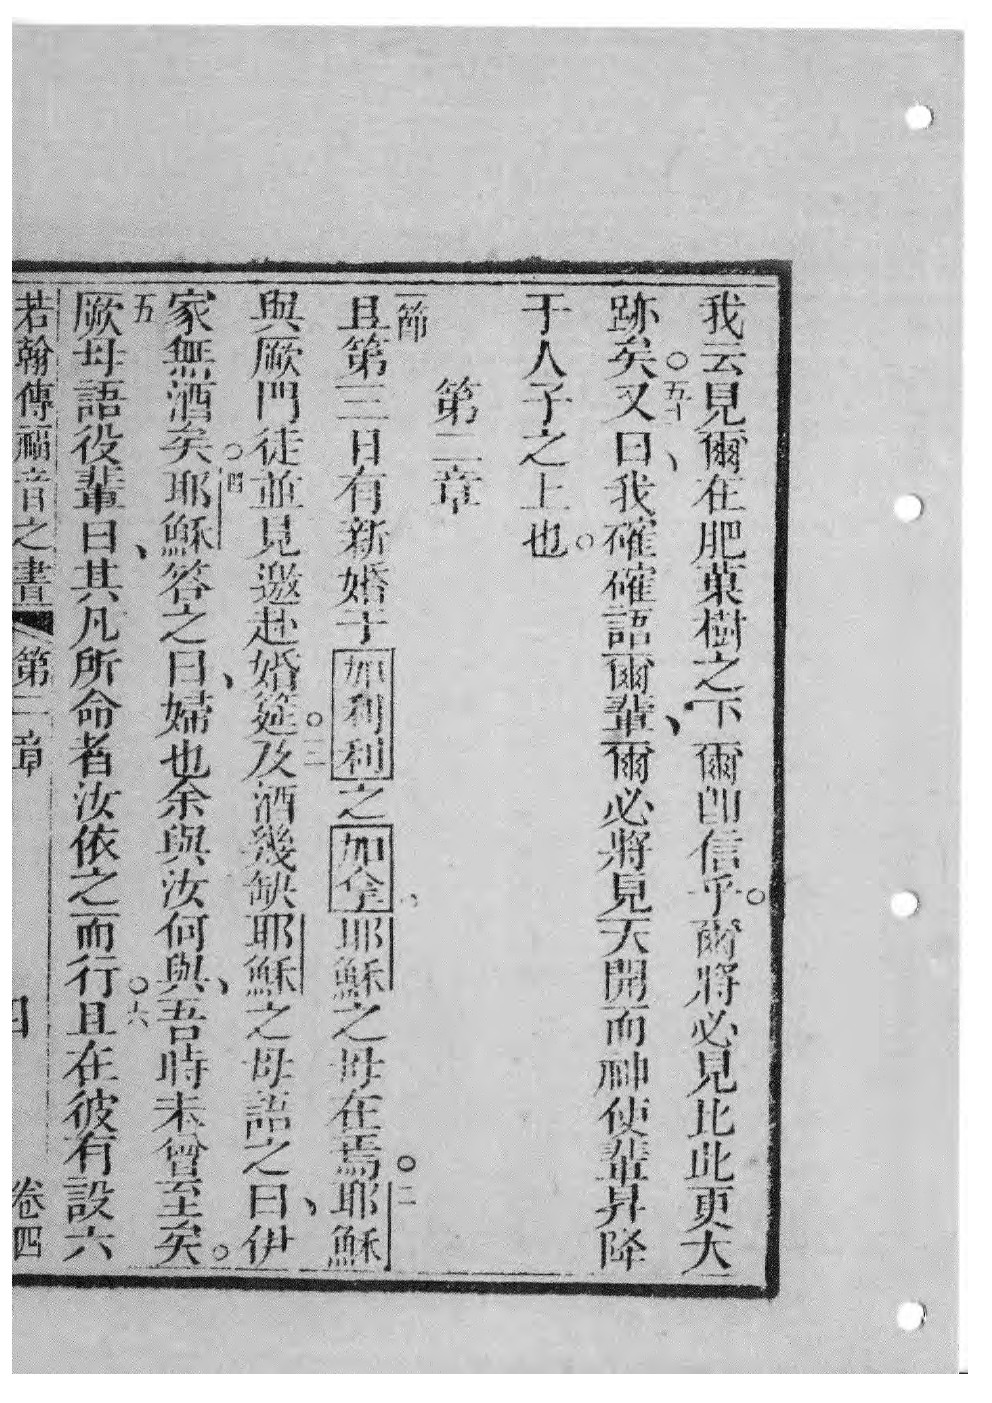 我云見爾在肥菓樹之下爾卽信乎。爾將必見比此更大
跡矣。五十又曰、我確確語爾輩、爾必將見天開而神使輩昇降
于人子之上也。
第二章
一節且第三日有新婚于如利利之加拿耶穌之母在焉。二耶穌
與厥門徒並見邀赴婚筵。三及酒幾缺耶穌之母語之曰、伊
家無酒矣。四耶穌答之曰、婦也余與汝何與、吾時未曾至矣。
五厥母語役輩曰、其凡所命者汝依之而行。六且在彼有設六
若翰傳福音之書 第二章 四 卷四